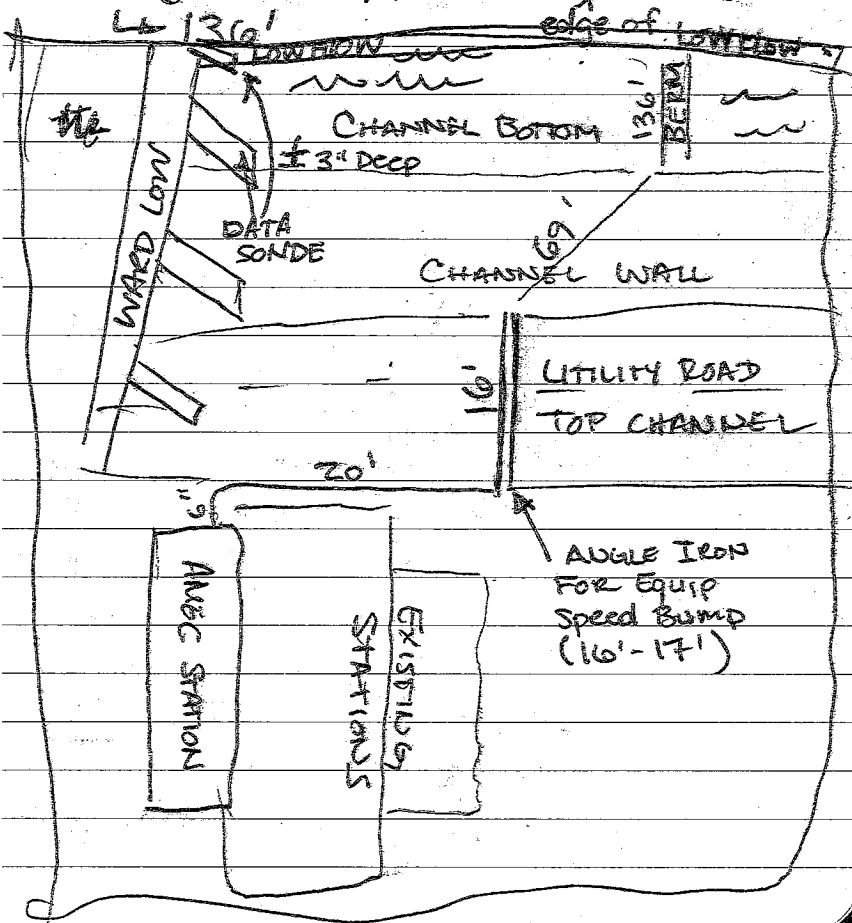 136'
edge of LOWFLOW
LOWFLOW
CHANNEL BOTTOM
136'
BERM
± 3" Deep
WARDLOW
DATA
SONDE
69'
CHANNEL WALL
16'
UTILITY ROAD
TOP CHANNEL
20'
6"
ANGLE IRON
FOR Equip
Speed Bump
(16'-17')
STATION
EXISTING
STATIONS